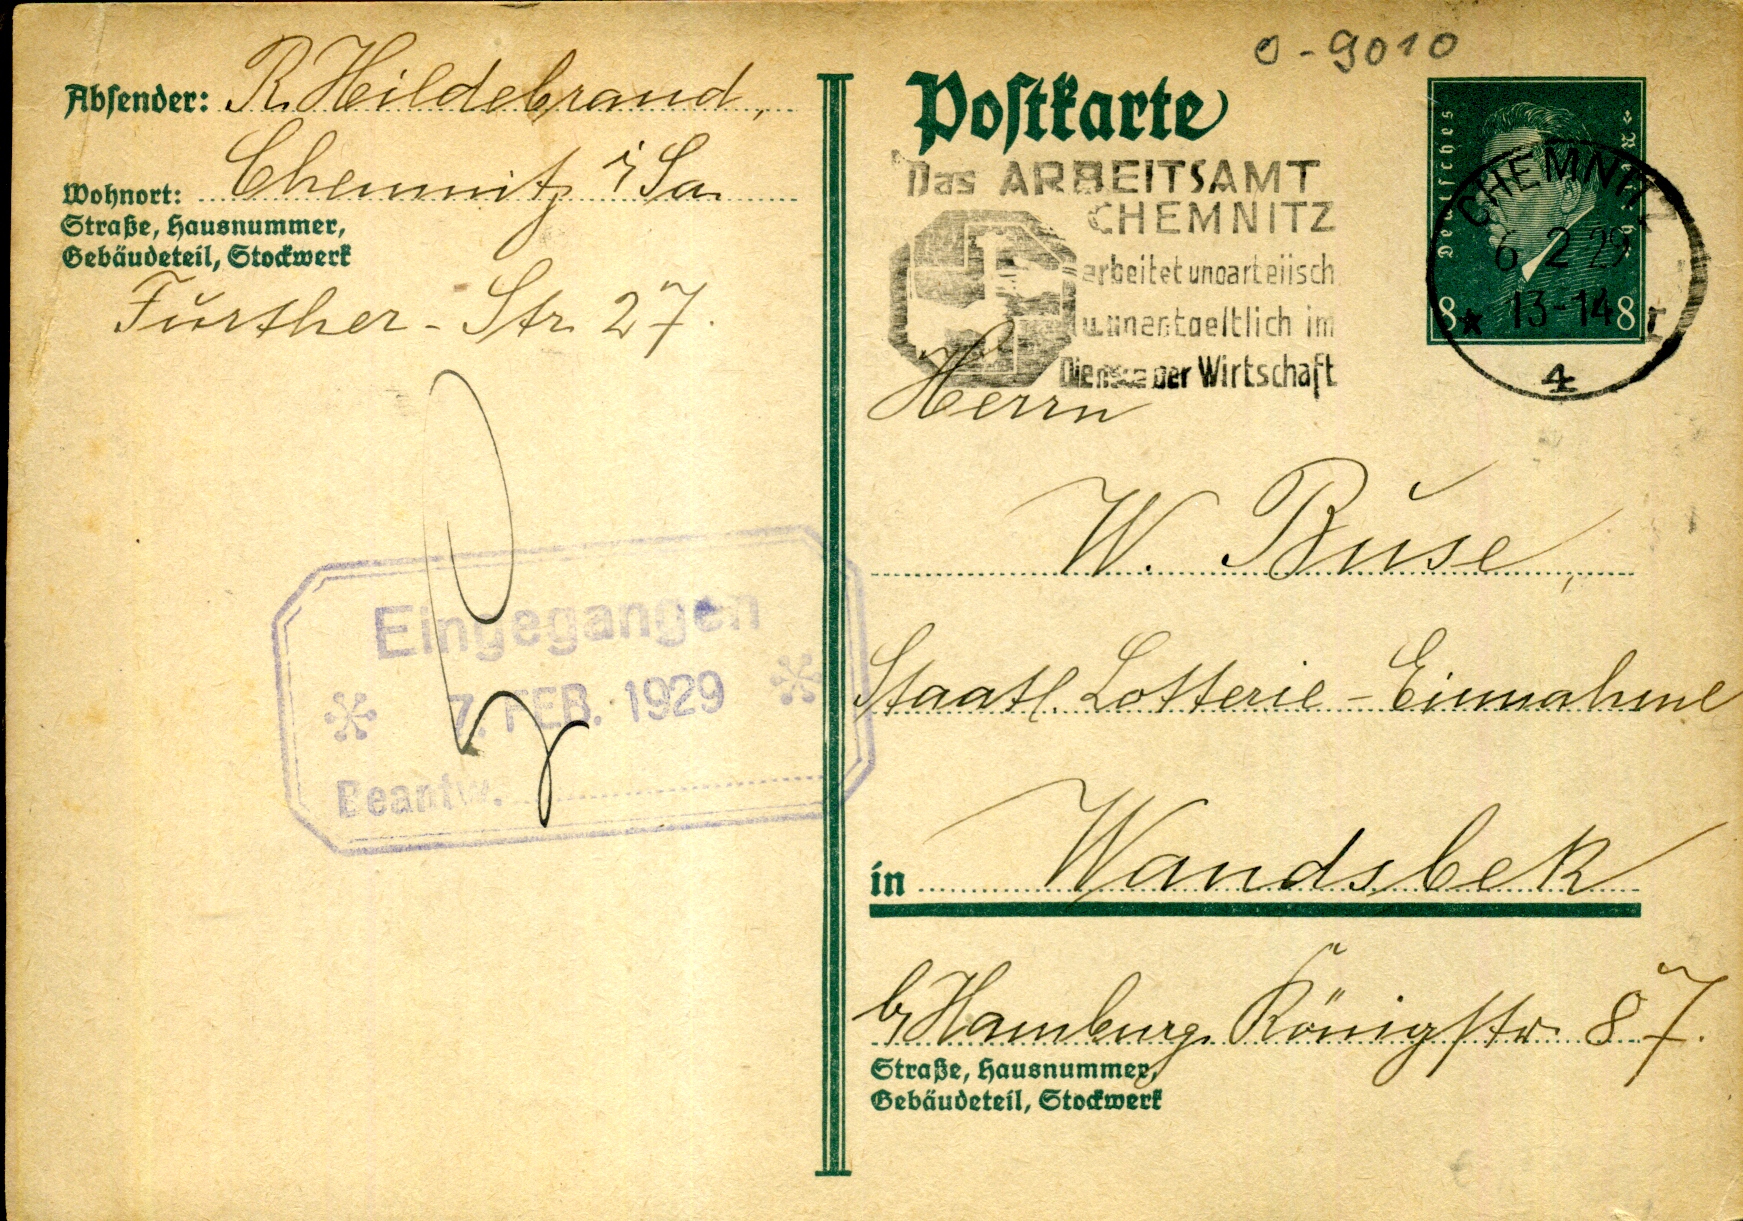 Absender: R. Hildebrand,
Wohnort: Chemnitz i/Sa.
Straße, Hausnummer,
Gebäudeteil, Stockwerk
Fürther-Str. 27.
Eingegangen
7. FEB. 1929
Beantw.
0-9010
Postkarte
Deutsches Reich
8 8
CHEMNITZ
6 2 29
13-14
4
Das ARBEITSAMT
CHEMNITZ
arbeitet unparteiisch
u. unentgeltlich im
Dienste der Wirtschaft
Herrn
W. Buse,
Staatl. Lotterie-Einnahme
in Wandsbek
b/Hamburg. Königstr. 87.
Straße, Hausnummer,
Gebäudeteil, Stockwerk